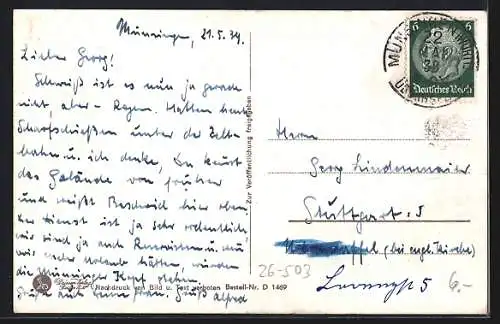 Münsingen, 21.5.39.
Lieber Georg!
Schweiß ist es nun ja gerade
nicht aber – Regen. Hatten heute
Scharfschießen unter der Zelt-
bahn u. ich denke, Du kennst
das Gelände von früher
und weißt Bescheid hier oben.
Der Dienst ist ja sehr ordentlich
wir sind ja auch Reservisten u. wenn
wir mehr Urlaub hätten, würden
die Münsinger Kopf stehen.
Grüße auch Deine Frau. Gruß Alfred
Nachdruck von Bild u. Text verboten Bestell-Nr. D 1469
Zur Veröffentlichung freigegeben
6 6
Deutsches Reich
MÜNSINGEN
Herrn
Georg Lindenmaier
Stuttgart-S
(bei engl. Kirche)
5
26-503
6.-